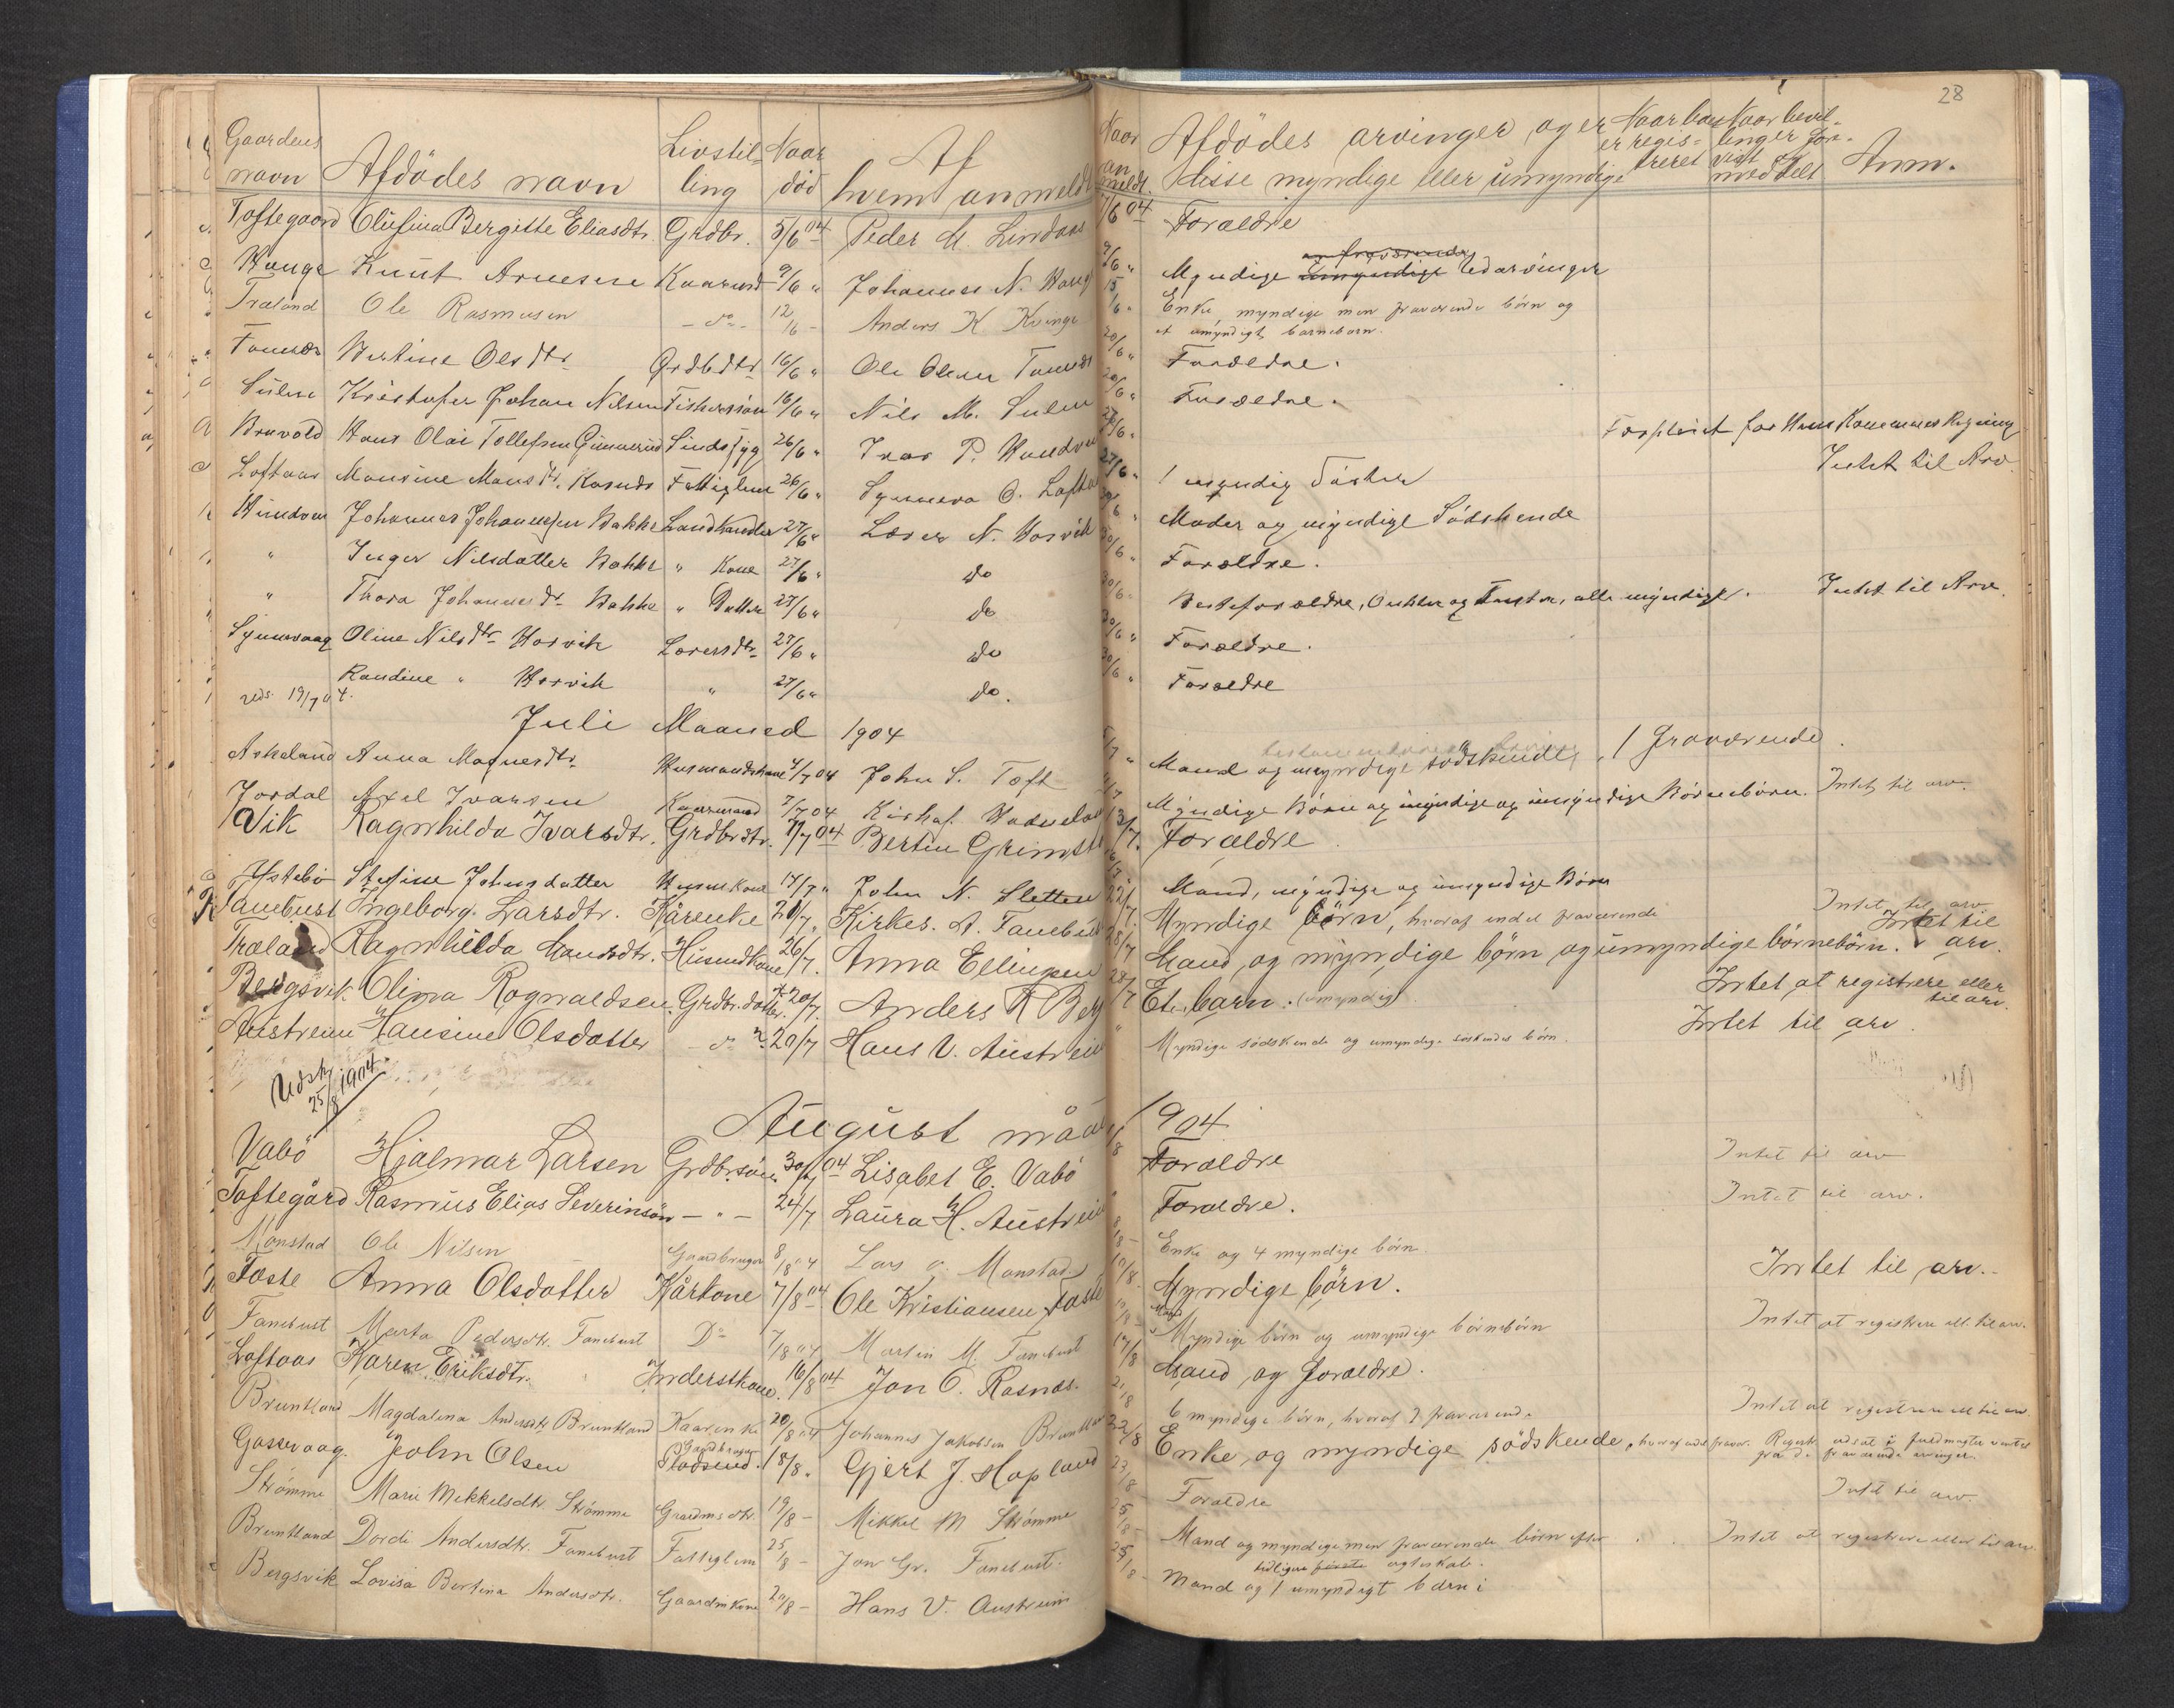 28
Gaardens navn Afdödes navn Livstilling Naar död Af hvem anmeldt Naar anmeldt Afdödes arvinger og er disse myndige eller umyndige Naar boet er regis- treret Naar bevil- linger forvist meddelt Anm.
Toftegaard Olufina Bergitte Eliasdtr. Grdbr. 5/6 04 Peder M. Lindaas 7/6 04 Forældre
Hauge Knut Arnesen Kaarmd 9/6 " Johannes N. Haug 9/6 " Myndige umyndige Udarvinger
Træland Ole Rasmusen - do - 12/6 - Anders K. Kvinge 15/6 " Enke, myndige men fraværende börn og
et umyndigt barnebarn.
Bertine Olsdtr. Grdbdtr 16/6 " Ole Olsen 20/6 " Forældre.
Sulen Kristofer Johan Nilsen Fiskersön 16/6 " Nils M. Sulen 20/6 " Forældre.
Bruvold Hans Olai Tollefsen Sindssyg 26/6 " Ivar P. Forpleiet for
Loftaas Monsine Monsdtr. Fattiglem 26/6 " Synneva O. Lofta 27/6 " 1 myndig Söster Intet til Arv.
Hundven Johannes Johannessen Bakke Landhandler 27/6 " Lærer N. Horvik Moder og myndige Södskende
" Inger Nilsdatter Bakke " Kone 27/6 " do 30/6 " Forældre.
" Thora Johannesdtr. Bakke " Datter 27/6 " do 30/6 " Besteforældre, Onkler og Tanter, alle myndige. Intet til Arv.
Oline Nilsdtr. Horvik Lærersdtr 27/6 " do 30/6 " Forældre.
Randine " Horvik " 27/6 " do. 30/6 " Forældre
19/7 04.
Juli Maaned 1904
Askeland Anna Magnesdtr. Husmandskone 4/7 04 John S. Toft Mand og myndige sødskende, 1 fraværende.
Jordal Axel Ivarsen Kaarmand 7/7 04 Myndige Börn og myndige og umyndige Börnebörn. Intet til arv.
Vik Ragnhilda Ivarsdtr. Grdbrdtr. 04 Bertin Grimst 13/7 Forældre
Johnsdatter Husmkone 17/7 " John N. Sletten Mand, myndige og umyndige Börn
Fanebust Ingeborg Larsdtr. Kårenke 20/7 Kirkes. A. Fanebust 22/7 Myndige börn, hvoraf endel fraværende Intet til arv
Træland Ragnhilda Hansdtr. Husmdkone 26/7. Anna Ellingsen 28/7 Mand og myndige börn og umyndige börnebörn. Intet til arv.
Bergsvik Olina Ragnvaldsen Grdbr. datter 20/7. Anders R Berg 28/7 Et barn. (umyndig) Intet at registrere eller til arv.
Austreim Hansine Olsdatter - do - 20/7 Hans V. Austreim " Myndige södskende og umyndige söskendes börn. Intet til arv.
Udskr. 25/8 1904.
August måned 1904.
Vabö Hjalmar Larsen Grdbrsön 30/7 04 Lisabet E. Vabö Forældre Intet til arv
Toftegård Rasmus Elias Severinsön - " - 24/7 Laura H. Austreim " Forældre. Intet til arv.
Monstad Ole Nilsen Gaardbruger 8/8 04 Lars O. Monstad Enke og 4 myndige börn
Foste Anna Olsdatter Kårkone 7/8 04 Ole Kristiansen Foste 10/8 Myndige börn. Intet til arv.
Fanebust Marta Pedersdtr. Fanebust Do 7/8 04 Martin M. Fanebust Myndige börn og umyndige börnebörn Intet at registrere ell. til arv.
Loftaas Karen Eriksdtr. Inderstkone. 16/8 04 Jon O. Rasnes. 17/8 Mand og forældre.
Bruntland Magdalena Andersdtr. Bruntland Kaarenke 20/8 04 Johannes Jakobsen Bruntland 21/8 6 myndige börn, hvoraf 2 fraværende Intet at registrere ell. til arv
Gaassevaag John Olsen Gaardbruger 18/8 " Gjert J. Hopland 22/8 Enke og myndige södskende, hvoraf endel fravær. Regist. udsat i fuldmagter ventes fra d. fraværende arvinger.
Strömme Marie Mikkelsdtr. Strömme Gaardmsdtr. 19/8 - Mikkel M Strömme 23/8 Forældre Intet til arv.
Bruntland Dordi Andersdtr. Fanebust Fattiglem 25/8 - Jon Gr. Fanebust. 25/8 - Mand og myndige men fraværende börn efter Intet at registrere eller til arv.
tidligere förste ægteskab.
Bergsvik Lovisa Bertina Andersdtr. Gaardmkone 20/8 - Hans V. Austreim 25/8 - Mand og 1 umyndigt barn i